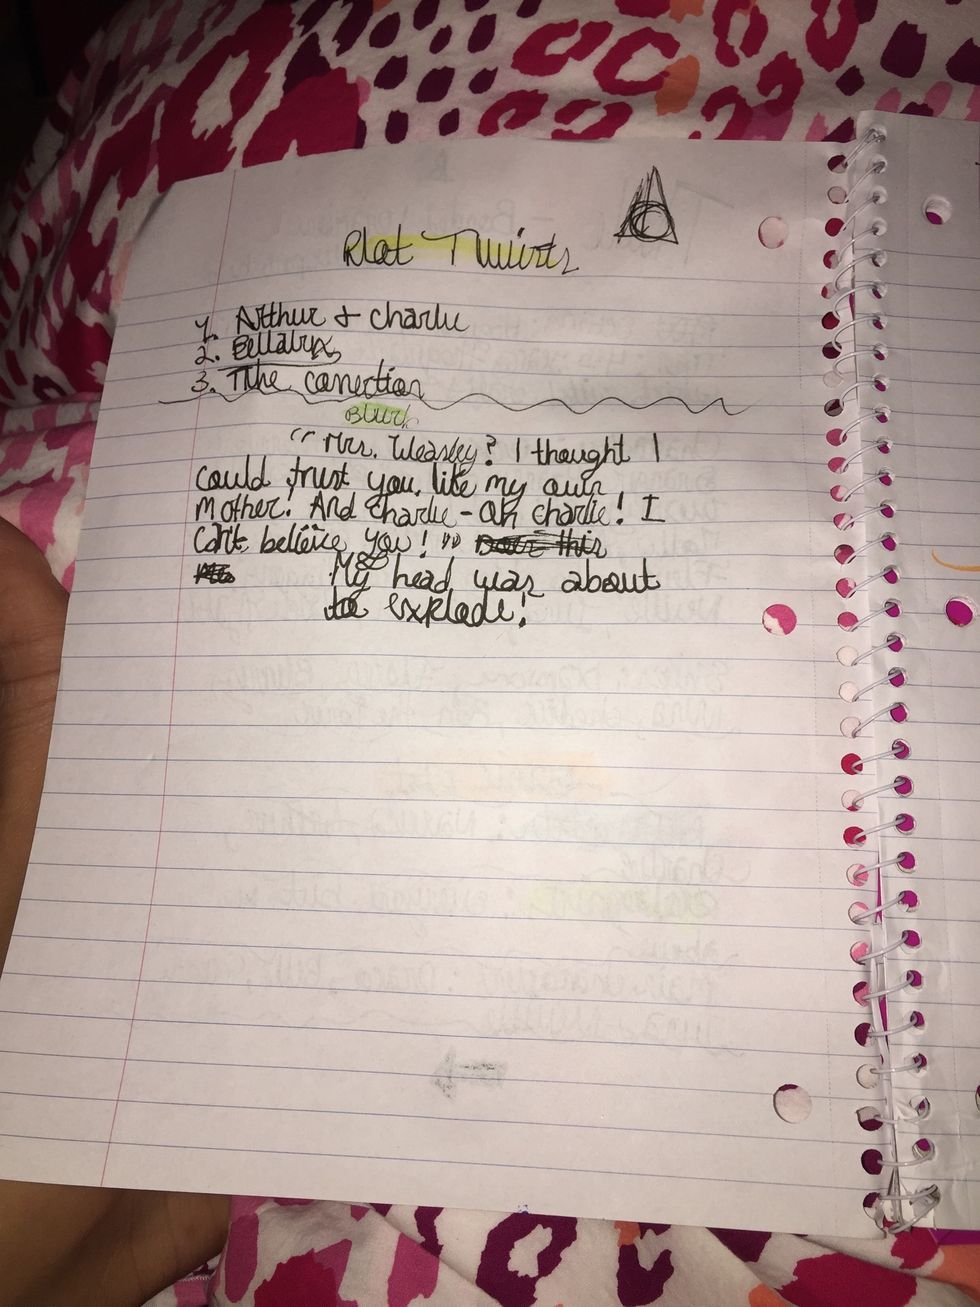 Plot Twists
1. Arthur & Charlie
2. Bellatrix
3. The conection
Blurb
"Mrs. Weasley? I thought I
could trust you, like my own
mother! And Charlie - Oh Charlie! I
Can't believe you!"
My head was about
to explode!